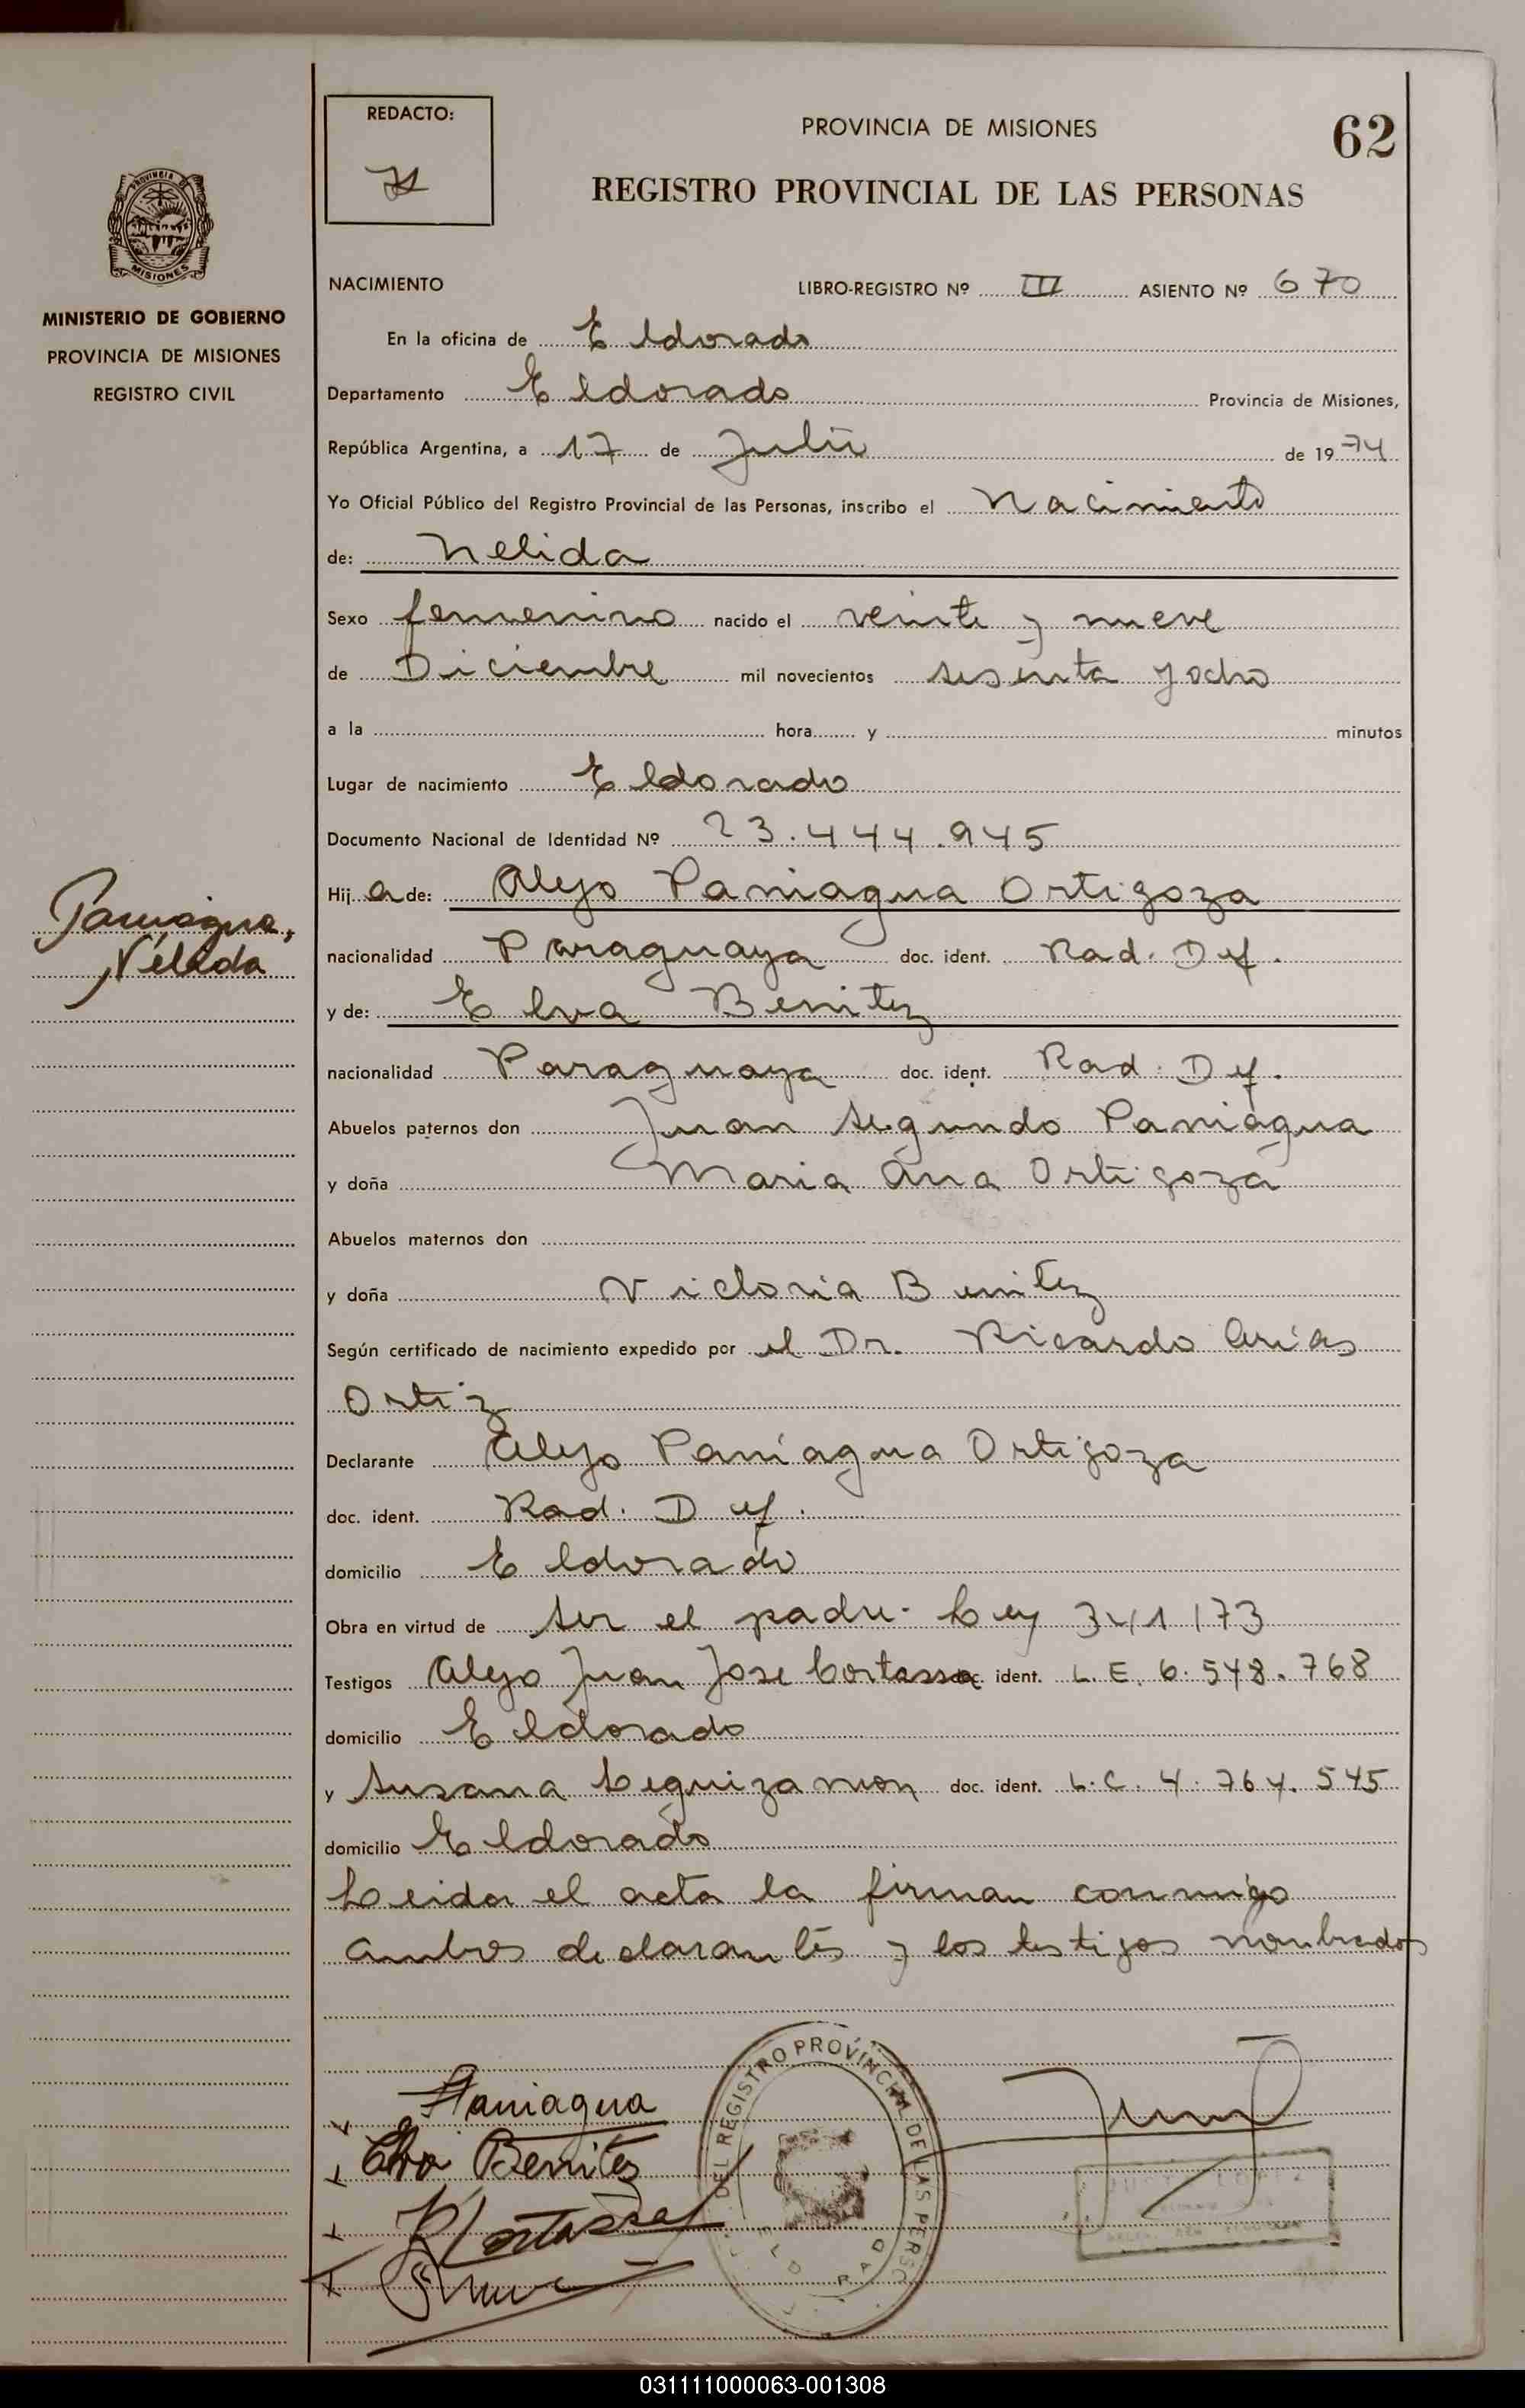 REDACTO:
PROVINCIA DE MISIONES
62
REGISTRO PROVINCIAL DE LAS PERSONAS
PROVINCIA DE
MISIONES
MINISTERIO DE GOBIERNO
PROVINCIA DE MISIONES
REGISTRO CIVIL
NACIMIENTO LIBRO-REGISTRO Nº III ASIENTO Nº 670
En la oficina de Eldorado
Departamento Eldorado Provincia de Misiones,
República Argentina, a 17 de Julio de 1974
Yo Oficial Público del Registro Provincial de las Personas, inscribo el Nacimiento
de: Nelida
Sexo femenino nacido el veinte y nueve
de Diciembre mil novecientos sesenta y ocho
a la hora y minutos
Lugar de nacimiento Eldorado
Documento Nacional de Identidad Nº 23.444.945
Paniagua,
Nélida
Hij a de: Alejo Paniagua Ortigoza
nacionalidad Paraguaya doc. ident. Rad. Def.
y de: Elva Benitez
nacionalidad Paraguaya doc. ident. Rad. Def.
Abuelos paternos don Juan Segundo Paniagua
y doña Maria Ana Ortigoza
Abuelos maternos don
y doña Victoria Benitez
Según certificado de nacimiento expedido por el Dr. Ricardo Arias
Ortiz
Declarante Alejo Paniagua Ortigoza
doc. ident. Rad. Def.
domicilio Eldorado
Obra en virtud de ser el padre. Ley 341/73
Testigos Alejo Juan Jose Cortassa doc. ident. L.E. 6.548.768
domicilio Eldorado
y Susana Leguizamon doc. ident. L.C. 4.764.545
domicilio Eldorado
Leida el acta la firman conmigo
ambos declarantes y los testigos nombrados
Paniagua
Elva Benites
Cortassa
DEL REGISTRO PROVINCIAL DE LAS PERSO
031111000063-001308